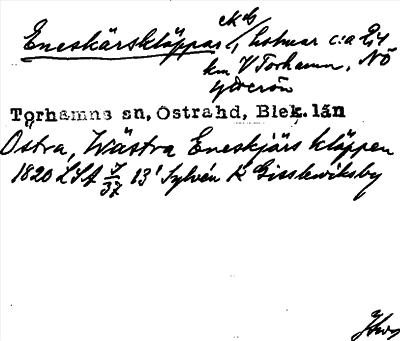 Eneskärskläppar ekb/, holmar c:a 2,4
km V Torhamn, NÖ
Ytterön
Torhamns sn, Östrahd, Blek. län
Östra, Wästra Eneskjärs kläppen
1820 LSA J/37 13' Sylvén k Gisslewiksby